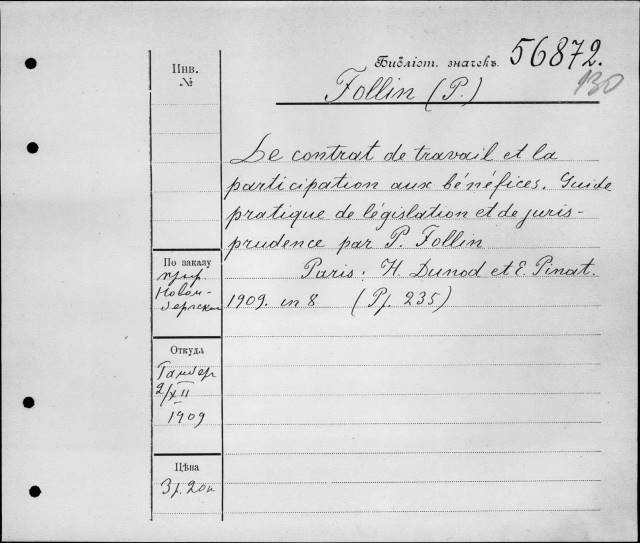 Инв.
№
Библіот. значекъ.
56872.
130
Follin (P.)
Le contrat de travail et la
participation aux bénéfices. Guide
pratique de législation et de juris-
prudence par P. Follin
Paris: H. Dunod et E. Pinat.
1909. in 8 (Pf. 235)
По заказу
проф.
Новом-
бергскаго
Откуда
Гамбер
2/XII
1909
Цѣна
3р. 20к